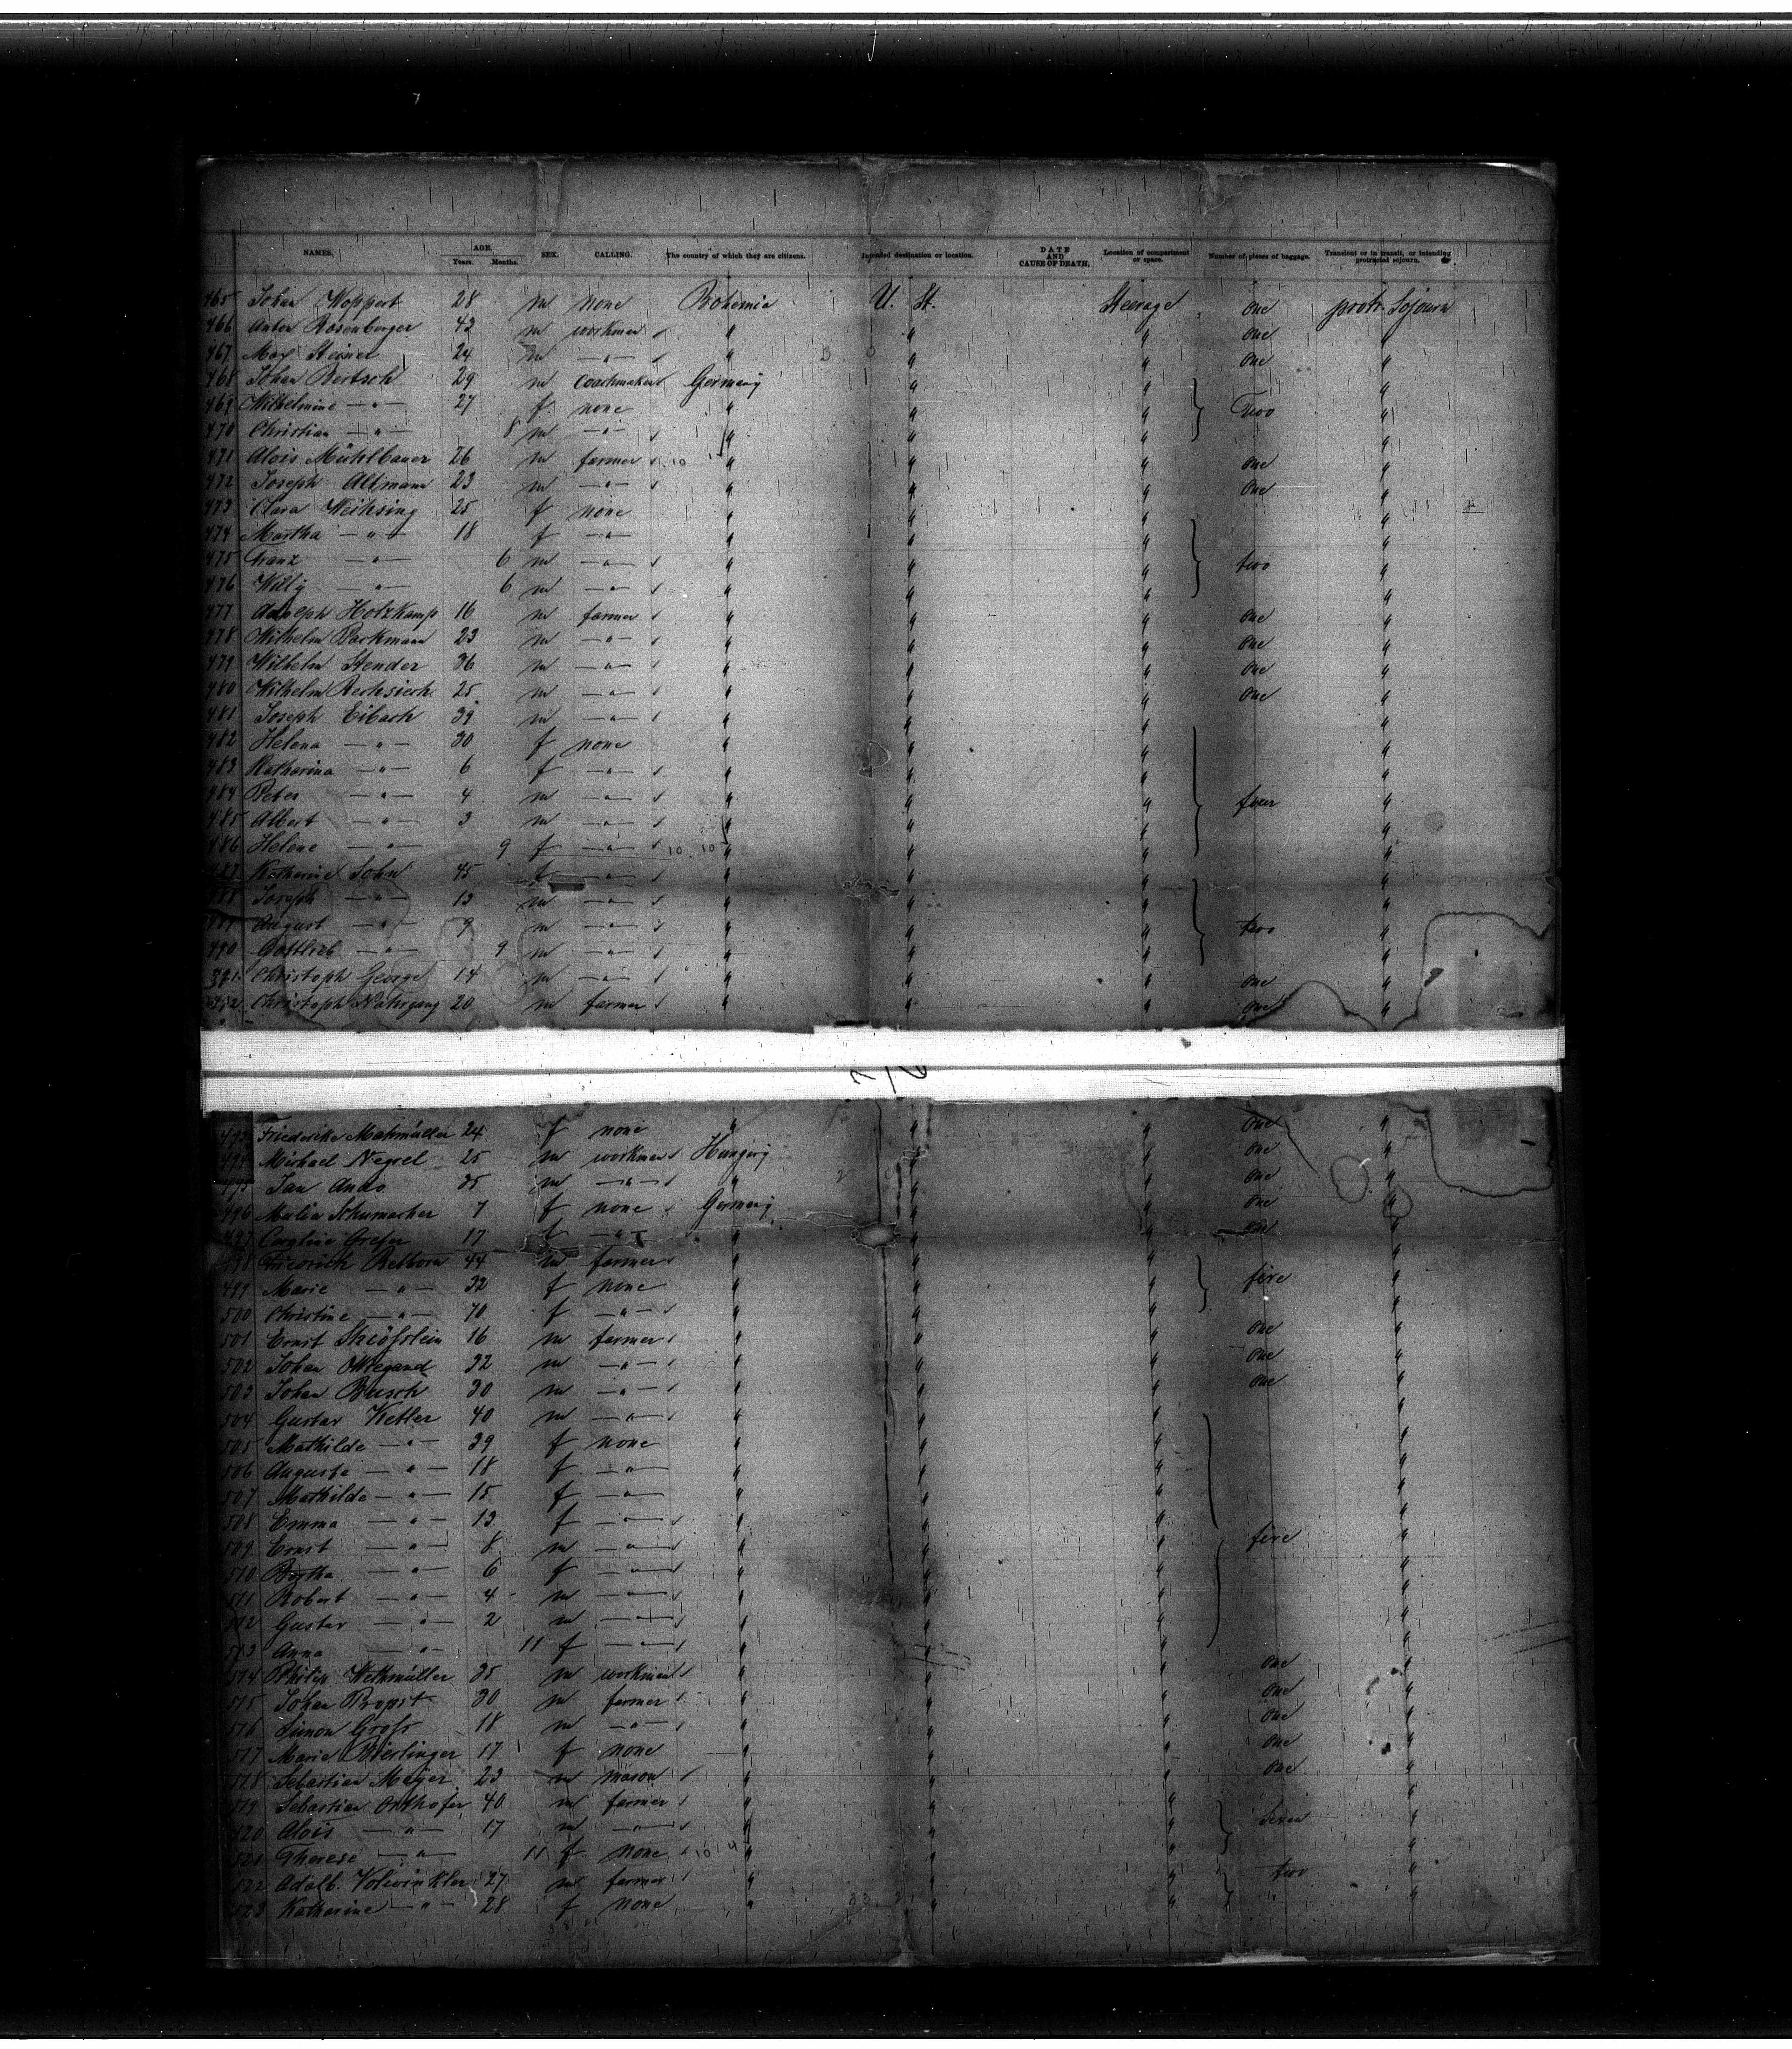 NAMES. AGE. Years. Months. SEX. CALLING. The country of which they are citizens. Intended destination or location. DATE AND CAUSE OF DEATH. Location of compartment or space. Number of pieces of baggage. Transient or in transit, or intending protracted sojourn.
465 Johan Woppert 28 m none Bohemia U. St. Steerage one protr. Sojourn
466 Anton Rosenberger 43 m workman " " " one "
467 Max Steiner 24 m —"— " " " one "
468 Johan Bertsch 29 m coachmaker Germany " " "
469 Wilhelmine —"— 27 f none " " " Two "
470 Christian —"— 8 m —"— " " " "
471 Alois Mühlbauer 26 m farmer " " " one "
472 Joseph Altmann 23 m —"— " " " one "
473 Clara Weihsing 25 f none " " " "
474 Martha —"— 18 f —"— " " " "
475 Franz —"— 6 m —"— " " " two "
476 Willy —"— 6 m —"— " " " "
477 Adolph Holzkamp 16 m farmer " " " one "
478 Wilhelm Backmann 23 m —"— " " " one "
479 Wilhelm Stender 36 m —"— " " " one "
480 Wilhelm 25 m —"— " " " one "
481 Joseph Eibach 39 m —"— " " " "
482 Helena —"— 30 f none " " " "
483 Katharina —"— 6 f —"— " " " "
484 Peter —"— 4 m —"— " " " four "
485 Albert —"— 3 m —"— " " " "
486 Helene —"— 9 f —"— " " " "
487 Katharine John 45 f —"— " " " "
488 Joseph —"— 13 m —"— " " " "
489 August —"— 9 m —"— " " " two "
490 Gottlieb —"— 9 m —"— " " " "
491 Christoph George 14 m —"— " " " one "
492 Christoph Nahrgang 20 m farmer " " " one "
493 Friederike 24 f none " " " one "
494 Michael 25 m workman Hungary " " one "
495 Jan 35 m —"— " " " one "
496 Schumacher 7 f none Germany " " one "
497 Caroline Grefer 17 f —"— " " " one "
498 Friedrich Relborn 44 m farmer " " " "
499 Marie —"— 32 f none " " " five "
500 Christine —"— 70 f —"— " " " "
501 Ernst 16 m farmer " " " one "
502 Johan Wiegand 32 m —"— " " " one "
503 Johan Busch 30 m —"— " " " one "
504 Gustav Ketler 40 m —"— " " " "
505 Mathilde —"— 39 f none " " " "
506 Auguste —"— 18 f —"— " " " "
507 Mathilde —"— 15 f —"— " " " "
508 Emma —"— 13 f —"— " " " "
509 Ernst —"— 8 m —"— " " " five "
510 Bertha —"— 6 f —"— " " " "
511 Robert —"— 4 m —"— " " " "
512 Gustav —"— 2 m —"— " " " "
513 Anna —"— 11 f —"— " " " "
514 Philip Wethmüller 35 m workman " " " one "
515 Johan Propst 30 m farmer " " " one "
516 Simon Gross 18 m —"— " " " one "
517 Marie Bierlinger 17 f none " " " one "
518 Sebastian Mayer 23 m mason " " " one "
519 Sebastian Orthofer 40 m farmer " " " "
520 Alois —"— 17 m —"— " " " "
521 Therese —"— 11 f none " " " "
522 Adalb. Volwinkler 27 m farmer " " " two "
523 Katharine —"— 28 f none " " " "